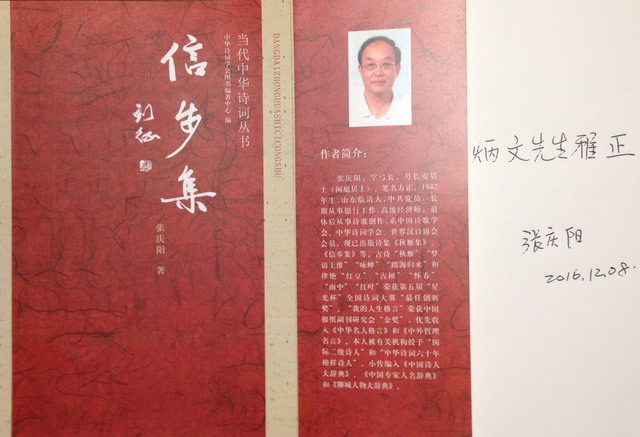 信步集
刘征
张庆阳 著
当代中华诗词丛书
中华诗词学会图书编著中心 编
DANGDAIZHONGHUASHICICONGSHU
作者简介：
张庆阳，字弓长，号长安居
士（闲庭居士），笔名方正，1942
年生，山东临清人，中共党员，长
期从事银行工作，高级经济师。退
休后从事诗歌创作，系中国诗歌学
会、中华诗词学会、世界汉诗协会
会员，现已出版诗集《秋雁集》、
《信步集》等。古诗“秋雁”“梦
访王维”“咏蝉”“踏海归来”和
律绝“红豆”“古树”“怀春”
“雨中”“红叶”荣获第五届“星
光杯”全国诗词大赛“最佳创新
奖”，“我的人生格言”荣获中国
报纸副刊研究会“金奖”，优先收
入《中华名人格言》和《中外哲理
名言》。本人被有关机构授予“国
际二级诗人”和“中华诗词六十年
榜样诗人”，小传编入《中国诗人
大辞典》、《中国专家人名辞典》
和《聊城人物大辞典》。
炳文先生雅正
张庆阳
2016.12.08.